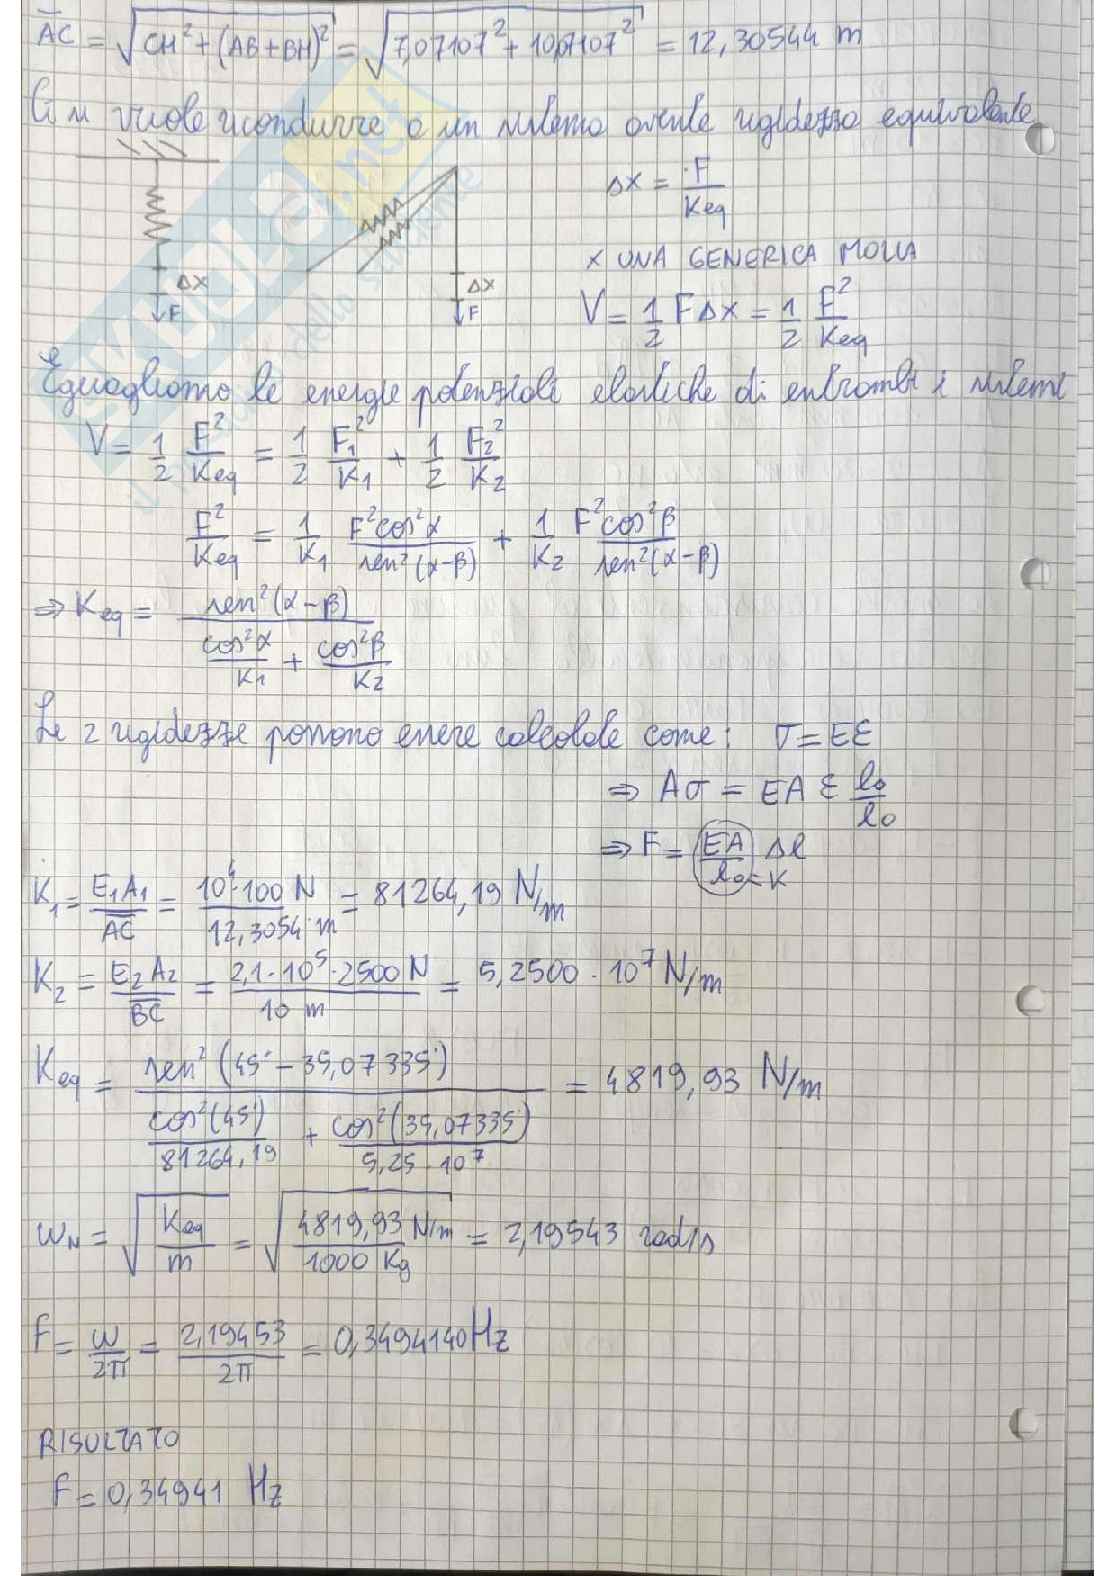 AC = √CH² + (AB+BH)² = √7,07107² + 10,7107² = 12,30544 m
Ci si vuole ricondurre a un sistema avente rigidezza equivalente
Δx = F / Keq
x UNA GENERICA MOLLA
Δx Δx
F F
V = 1/2 FΔx = 1/2 F²/Keq
Eguagliamo le energie potenziali elastiche di entrambi i sistemi
V = 1/2 F²/Keq = 1/2 F₁²/K₁ + 1/2 F₂²/K₂
F²/Keq = 1/K₁ F²cos²α/sen²(α-β) + 1/K₂ F²cos²β/sen²(α-β)
⇒ Keq = sen²(α-β) / (cos²α/K₁ + cos²β/K₂)
Le 2 rigidezze possono essere calcolate come: σ = Eε
⇒ Aσ = EA ε l₀/l₀
⇒ F = EA/l₀ Δl
= K
K₁ = E₁A₁/AC = 10⁴·100 N / 12,3054 m = 81264,19 N/m
K₂ = E₂A₂/BC = 2,1·10⁵·2500 N / 10 m = 5,2500·10⁷ N/m
Keq = sen²(45°-35,07335°) / (cos²(45°)/81264,19 + cos²(35,07335)/5,25·10⁷) = 4819,93 N/m
ωN = √Keq/m = √4819,93 N/m / 1000 Kg = 2,19543 rad/s
F = ω/2π = 2,19453/2π = 0,3494140 Hz
RISULTATO
F = 0,34941 Hz
SKUOLA.net